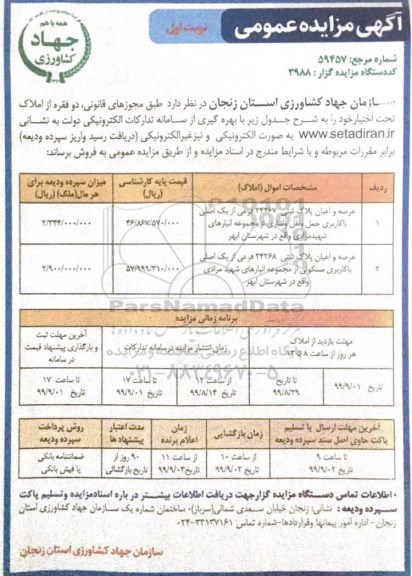 آگهی مزایده عمومی
نوبت اول
همه با هم
جهاد
کشاورزی
شماره مرجع: ۵۹۴۵۷
کددستگاه مزایده گزار: ۳۹۸۸
سازمان جهاد کشاورزی استان زنجان در نظر دارد طبق مجوزهای قانونی، دو فقره از املاک
تحت اختیارخود را به شرح جدول زیر با بهره گیری از سامانه تدارکات الکترونیکی دولت به نشانی
www.setadiran.ir به صورت الکترونیکی و نیزغیرالکترونیکی (دریافت رسید واریز سپرده ودیعه)
برابر مقررات مربوطه و با شرایط مندرج در اسناد مزایده و از طریق مزایده عمومی به فروش برساند:
ردیف
مشخصات اموال (املاک)
قیمت پایه کارشناسی (ریال)
میزان سپرده ودیعه برای هر مال(ملک) (ریال)
۱
عرصه و اعیان پلاک ثبتی ۲۴۲۶۷ فرعی از یک اصلی
باکاربری حمل ونقل انبارداری از مجموعه انبارهای
شهیدمرادی واقع در شهرستان ابهر
۴۶/۸۶۷/۵۷۰/۰۰۰
۲/۳۴۴/۰۰۰/۰۰۰
۲
عرصه و اعیان پلاک ثبتی ۲۴۲۶۸ فرعی از یک اصلی
باکاربری مسکونی از مجموعه انبارهای شهید مرادی
واقع در شهرستان ابهر
۵۷/۹۹۹/۳۱۰/۰۰۰
۲/۹۰۰/۰۰۰/۰۰۰
ParsNamadData
۰۲۱-۸۸۳۴۹۶۷۰-۵
برنامه زمانی مزایده
مهلت بازدید از املاک
هر روز از ساعت ۸ تا ۱۳
زمان انتشار مزایده درسامانه تدارکات
آخرین مهلت ثبت
و بارگذاری پیشنهاد قیمت
در سامانه
تاریخ ۹۹/۹/۰۱
تا تاریخ
۹۹/۸/۲۹
از ساعت ۱۲
تاریخ ۹۹/۸/۱۴
تا ساعت ۱۷
تاریخ ۹۹/۹/۰۱
تا ساعت ۱۷
تاریخ ۹۹/۹/۰۱
آخرین مهلت ارسال یا تسلیم
پاکت حاوی اصل سند سپرده ودیعه
زمان بازگشایی
زمان
اعلام برنده
مدت اعتبار
پیشنهاد ها
روش پرداخت
سپرده ودیعه
تا ساعت ۹
تاریخ ۹۹/۹/۰۲
از ساعت ۱۰
تاریخ ۹۹/۹/۰۲
از ساعت ۱۱
تاریخ ۹۹/۹/۰۳
۹۰ روز از
تاریخ بازگشائی
ضمانتنامه بانکی
یا فیش بانکی
• اطلاعات تماس دستگاه مزایده گزارجهت دریافت اطلاعات بیشتر در باره اسنادمزایده وتسلیم پاکت
سپرده ودیعه : نشانی: زنجان خیابان سعدی شمالی(سرباز)- ساختمان شماره یک سازمان جهاد کشاورزی استان
زنجان- اداره امور پیمانها وقراردادها-شماره تماس ۳۳۱۳۷۱۶۱-۰۲۴
سازمان جهاد کشاورزی استان زنجان